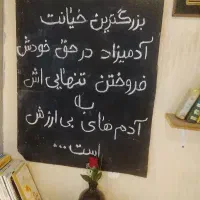 بزرگترین خیانت
آدمیزاد در حق خودش
فروختن تنهایی اش
به
آدم های بی ارزش
است...